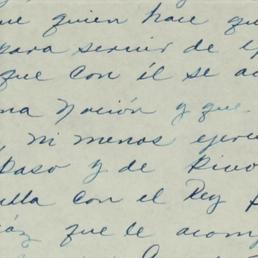 ue quien hace qu
para servir de ej
que con él se a
na Nación y que
ni menos ejerc
Paso y de Rivo
lla con el Rey
que le acom